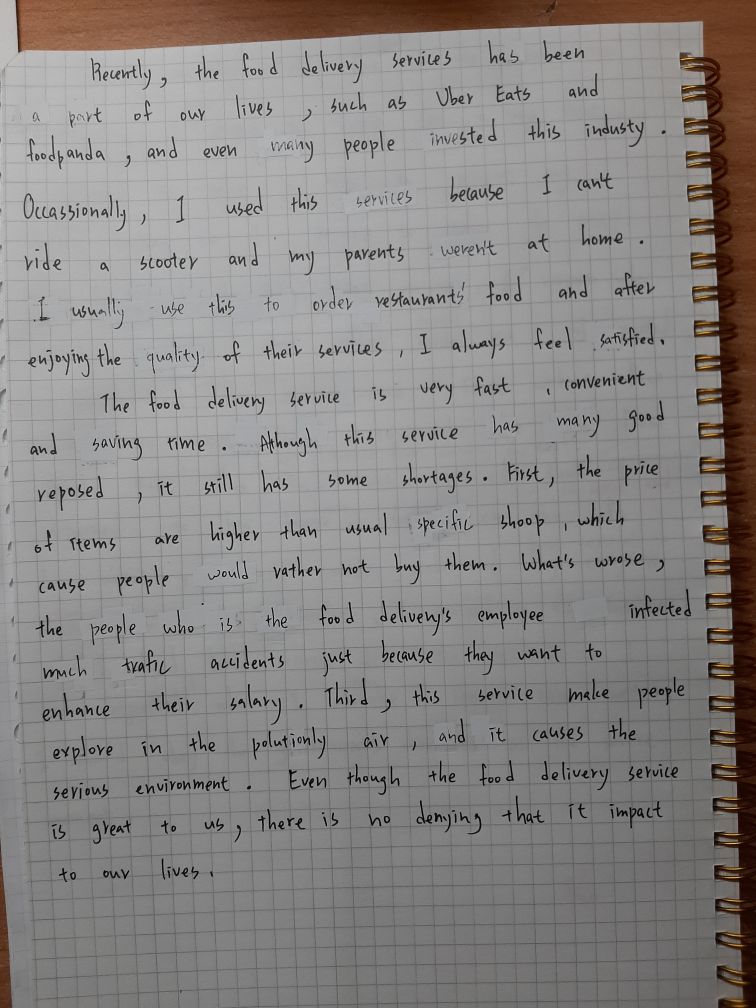 Recently, the food delivery services has been
a part of our lives, such as Uber Eats and
foodpanda, and even many people invested this industy.
Occassionally, I used this services because I can't
ride a scooter and my parents weren't at home.
I usually use this to order restaurants' food and after
enjoying the quality of their services, I always feel satisfied.
The food delivery service is very fast, convenient
and saving time. Although this service has many good
reposed, it still has some shortages. First, the price
of items are higher than usual specific shoop, which
cause people would rather not buy them. What's wrose,
the people who is the food delivery's employee infected
much trafic accidents just because they want to
enhance their salary. Third, this service make people
explore in the polutionly air, and it causes the
serious environment. Even though the food delivery service
is great to us, there is no denying that it impact
to our lives.